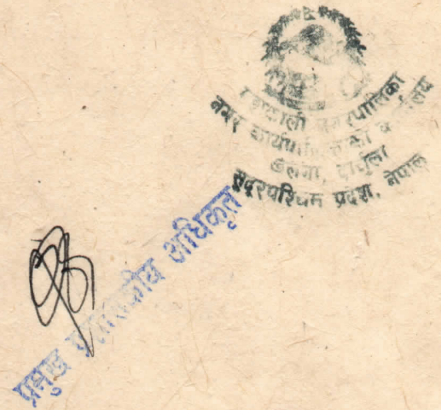 महाकाली नगरपालिका
नगर कार्यपालिकाको कार्यालय
खलंगा, दार्चुला
सुदूरपश्चिम प्रदेश, नेपाल
प्रमुख प्रशासकीय अधिकृत